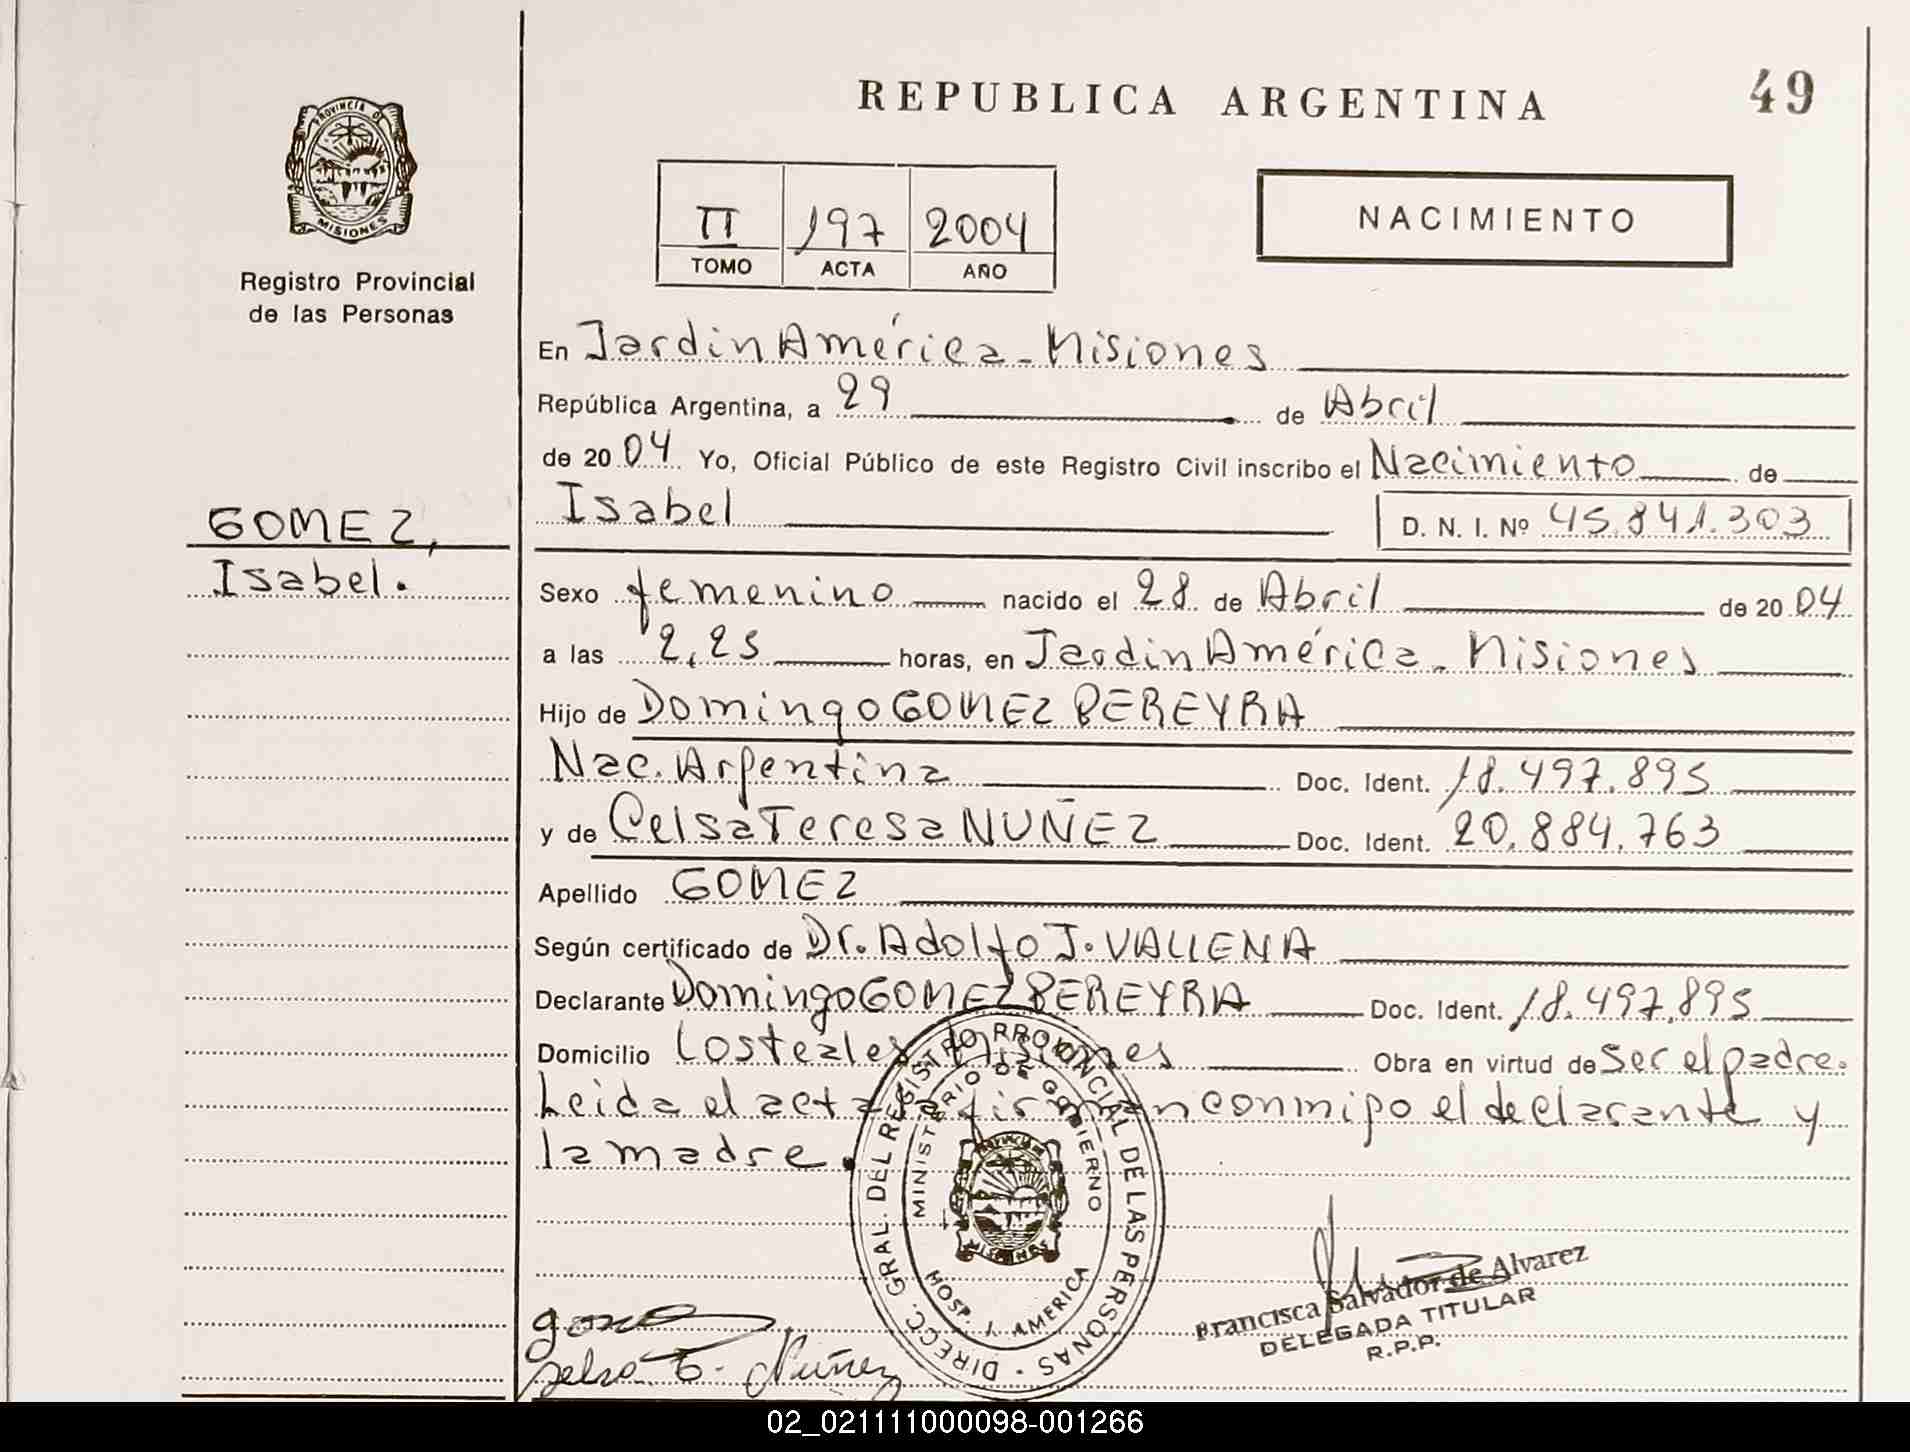 REPUBLICA ARGENTINA
49
PROVINCIA DE
MISIONES
Registro Provincial
de las Personas
II 197 2004
TOMO ACTA AÑO
NACIMIENTO
En Jardin América - Misiones
República Argentina, a 29 de Abril
de 2004 Yo, Oficial Público de este Registro Civil inscribo el Nacimiento de
Isabel
D. N. I. Nº 45.841.303
GOMEZ,
Isabel.
Sexo femenino nacido el 28 de Abril de 2004
a las 2,25 horas, en Jardin América - Misiones
Hijo de Domingo GOMEZ PEREYRA
Nac. Argentina Doc. Ident. 18.497.895
y de Celsa Teresa NUÑEZ Doc. Ident. 20.884.763
Apellido GOMEZ
Según certificado de Dr. Adolfo J. VALLENA
Declarante Domingo GOMEZ PEREYRA Doc. Ident. 18.497.895
Domicilio Los Teales Misiones Obra en virtud de ser el padre.
Leida el acta la firman conmigo el declarante y
la madre.
DIRECC. GRAL. DEL REGISTRO PROVINCIAL DE LAS PERSONAS
MINISTERIO DE GOBIERNO
PROVINCIA
MISIONES
HOSP. J. AMERICA
Francisca Salvador de Alvarez
DELEGADA TITULAR
R.P.P.
Celsa T. Nuñez
02_021111000098-001266